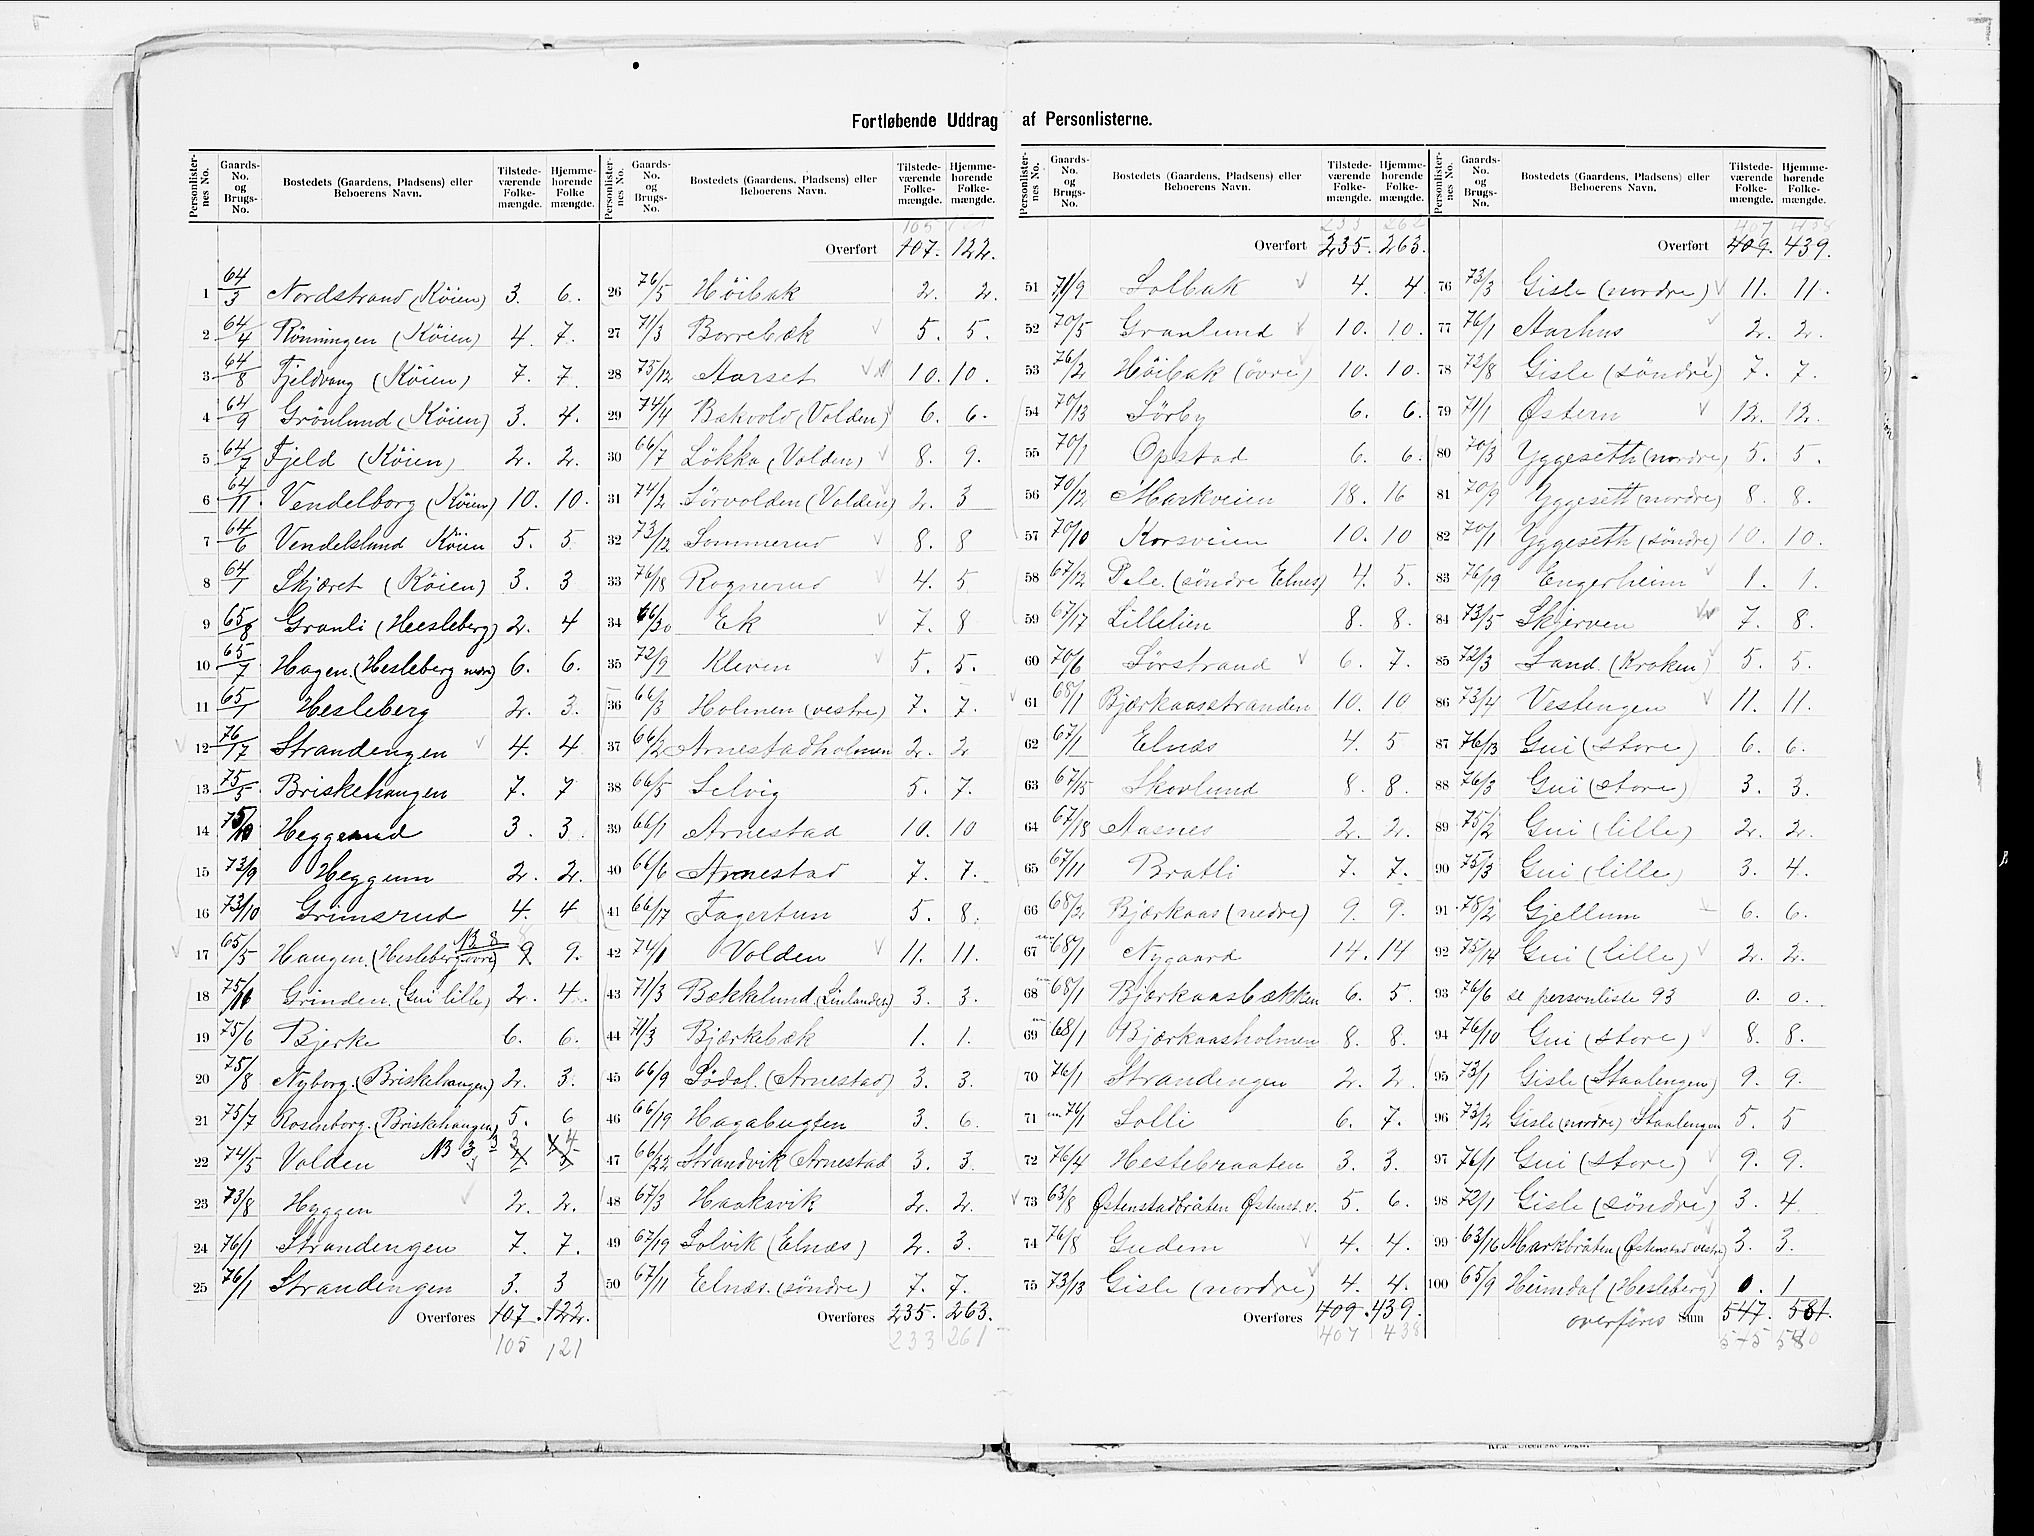 Fortløbende Uddrag af Personlisterne.
Personlister-nes No. Gaards-No. og Brugs-No. Bostedets (Gaardens, Pladsens) eller Beboerens Navn. Tilstede-værende Folke-mængde. Hjemme-hørende Folke mængde.
1 64/3 Nordstrand (Köien) 3. 6.
2 64/4 Rönningen (Köien) 4. 7.
3 64/8 Fjeldvang (Köien) 7. 7.
4 64/9 Grönlund (Köien) 3. 4.
5 64/7 Fjeld (Köien) 2. 2.
6 64/11 Vendelborg (Köien) 10. 10.
7 64/6 Vendelslund Köien 5. 5
8 64/1 Skjæret (Köien) 3. 3
9 65/8 Granli (Heesleberg) 2. 4
10 65/7 Hagen. (Hesleberg nor) 6. 6.
11 65/1 Hesleberg 2. 3.
12 76/17 Strandengen 4. 4
13 75/5 Briskehaugen 7. 7
14 75/10 Heggerud 3. 3
15 73/9 Heggum 2. 2.
16 73/10 Grimsrud 4. 4
17 65/5 Haugen. (Hesleberg övre) NB 8 9. 9.
18 75/11 Grinden. (Gui lille) 2. 4.
19 75/6 Bjerke 6. 6.
20 75/8 Nyborg. (Briskehaugen) 2. 3.
21 75/7 Rosenborg. (Briskehaugen) 5. 6
22 74/5 Volden NB 3 3 4
23 73/8 Hyggen 2. 2.
24 76/1 Strandengen 7. 7.
25 76/1 Strandengen 3. 3
Overføres 107. 122.
105 121
Personlister-nes No. Gaards-No. og Brugs-No. Bostedets (Gaardens, Pladsens) eller Beboerens Navn. Tilstede-værende Folke-mængde. Hjemme-hørende Folke-mængde.
105
Overført 107. 122.
26 76/5 Höibak 2. 2.
27 71/3 Borrebæk 5. 5.
28 75/12 Aarset 10. 10.
29 74/4 Bakvold (Volden) 6. 6.
30 66/7 Lökka (Volden) 8. 9.
31 74/2 Sörvolden (Volden) 2. 3
32 73/12 Sommerud 8. 8
33 76/18 Rognerud 4. 5
34 66/30 Ek 7. 8
35 72/9 Kleven 5. 5.
36 66/3 Holmen (vestre) 7. 7.
37 66/2 Arnestadholmen 2. 2
38 66/5 Selvig 5. 7.
39 66/1 Arnestad 10. 10
40 66/6 Arnestad 7. 7.
41 66/17 Fagertun 5. 8.
42 74/1 Volden 11. 11.
43 71/3 Bækkelund (Linlanden) 3. 3.
44 71/3 Bjærkebæk 1. 1.
45 66/9 Södal. (Arnestad) 3. 3.
46 66/19 Hagabugten 3. 6.
47 66/22 Strandvik Arnestad 3. 3.
48 67/3 Haakavik 2. 2.
49 67/19 Solvik (Elnæs) 2. 3.
50 67/11 Elnæs. (söndre) 7. 7.
Overføres 235. 263.
233 261
Personlister-nes No. Gaards-No. og Brugs-No. Bostedets (Gaardens, Pladsens) eller Beboerens Navn. Tilstede-værende Folke-mængde. Hjemme-hørende Folke-mængde.
233 262
Overført 235. 263.
51 71/9 Solbak 4. 4
52 70/5 Granlund 10. 10.
53 76/2 Höibak (övre) 10. 10.
54 70/13 Sörby 6. 6.
55 70/1 Opstad 6. 6.
56 70/12 Markveien 18. 16
57 70/10 Korsveien 10. 10
58 67/12 Pele. (söndre Elnes) 4. 5.
59 67/17 Lillelien 8. 8.
60 70/6 Sörstrand 6. 7.
61 68/1 Bjærkaasstranden 10. 10
62 67/1 Elnæs 4. 5
63 67/15 Skovlund 8. 8.
64 67/18 Aasnes 2. 2.
65 67/11 Bratli 7. 7.
66 68/2 Bjærkaas (nedre) 9. 9.
67 68/1 Nygaard 14. 14
68 68/1 Bjærkaasbækken 6. 5.
69 68/1 Bjærkaasholmen 8. 8.
70 76/1 Strandengen 2. 2.
71 76/1 Solli 6. 7.
72 76/4 Hestebraaten 3. 3.
73 63/8 Østenstadbråten Østenst. v. 5. 6.
74 76/8 Gudem 4. 4.
75 73/13 Gisle (nordre) 4. 4.
Overføres 409. 439.
407 438
Personlister-nes No. Gaards-No. og Brugs-No. Bostedets (Gaardens, Pladsens) eller Beboerens Navn. Tilstede-værende Folke-mængde. Hjemme-hørende Folke-mængde.
407 438
Overført 409. 439.
76 73/3 Gisle (nordre) 11. 11.
77 76/1 Aarhus 2. 2.
78 72/8 Gisle (söndre) 7. 7.
79 71/1 Østern 12. 12.
80 70/3 Yggeseth (nordre) 5. 5.
81 70/9 Yggesett (nordre) 8. 8.
82 70/1 Yggeseth (söndre) 10. 10.
83 76/19 Engerheim 1. 1.
84 73/5 Skjerven 7. 8.
85 72/3 Land. (Kroken) 5. 5.
86 73/4 Vestengen 11. 11.
87 76/13 Gui (store) 6. 6.
88 76/3 Gui (store) 3. 3.
89 75/2 Gui (lille) 2. 2.
90 75/3 Gui (lille) 3. 4.
91 78/2 Gjellum 6. 6.
92 75/14 Gui (lille) 2. 2.
93 76/6 se personliste 93 0. 0.
94 76/10 Gui (store) 8. 8.
95 73/1 Gisle (Staalengen) 9. 9.
96 73/2 Gisle (nordre) Staalengen 5. 5
97 76/1 Gui (store) 9. 9.
98 72/1 Gisle (söndre) 3. 4.
99 63/16 Markbråten (Østenstad vestre) 3. 3.
100 65/9 Heimdal (Hesleberg) 0. 1
overföres Sum 547. 581.
545 580